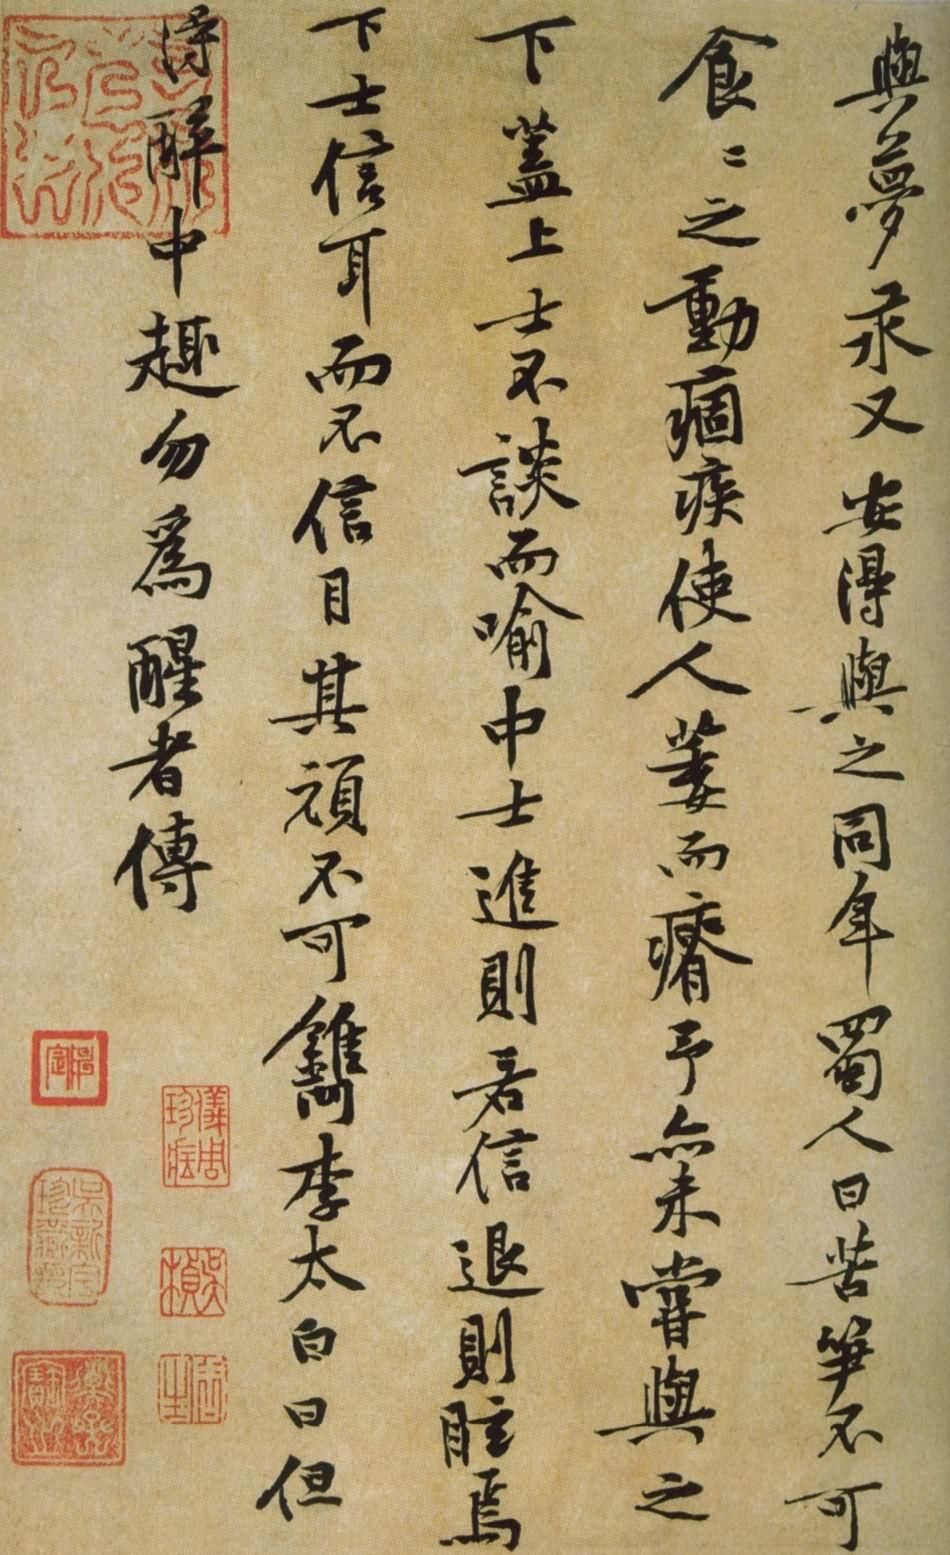 與夢永又安得與之同年蜀人曰苦笋不可
食〻之動痼疾使人萎而瘠予亦未嘗與之
下蓋上士不談而喻中士進則若信退則眩焉
下士信耳而不信目其頑不可鐫李太白曰但
得醉中趣勿爲醒者傳
儀周珍藏
吳新宇珍藏印